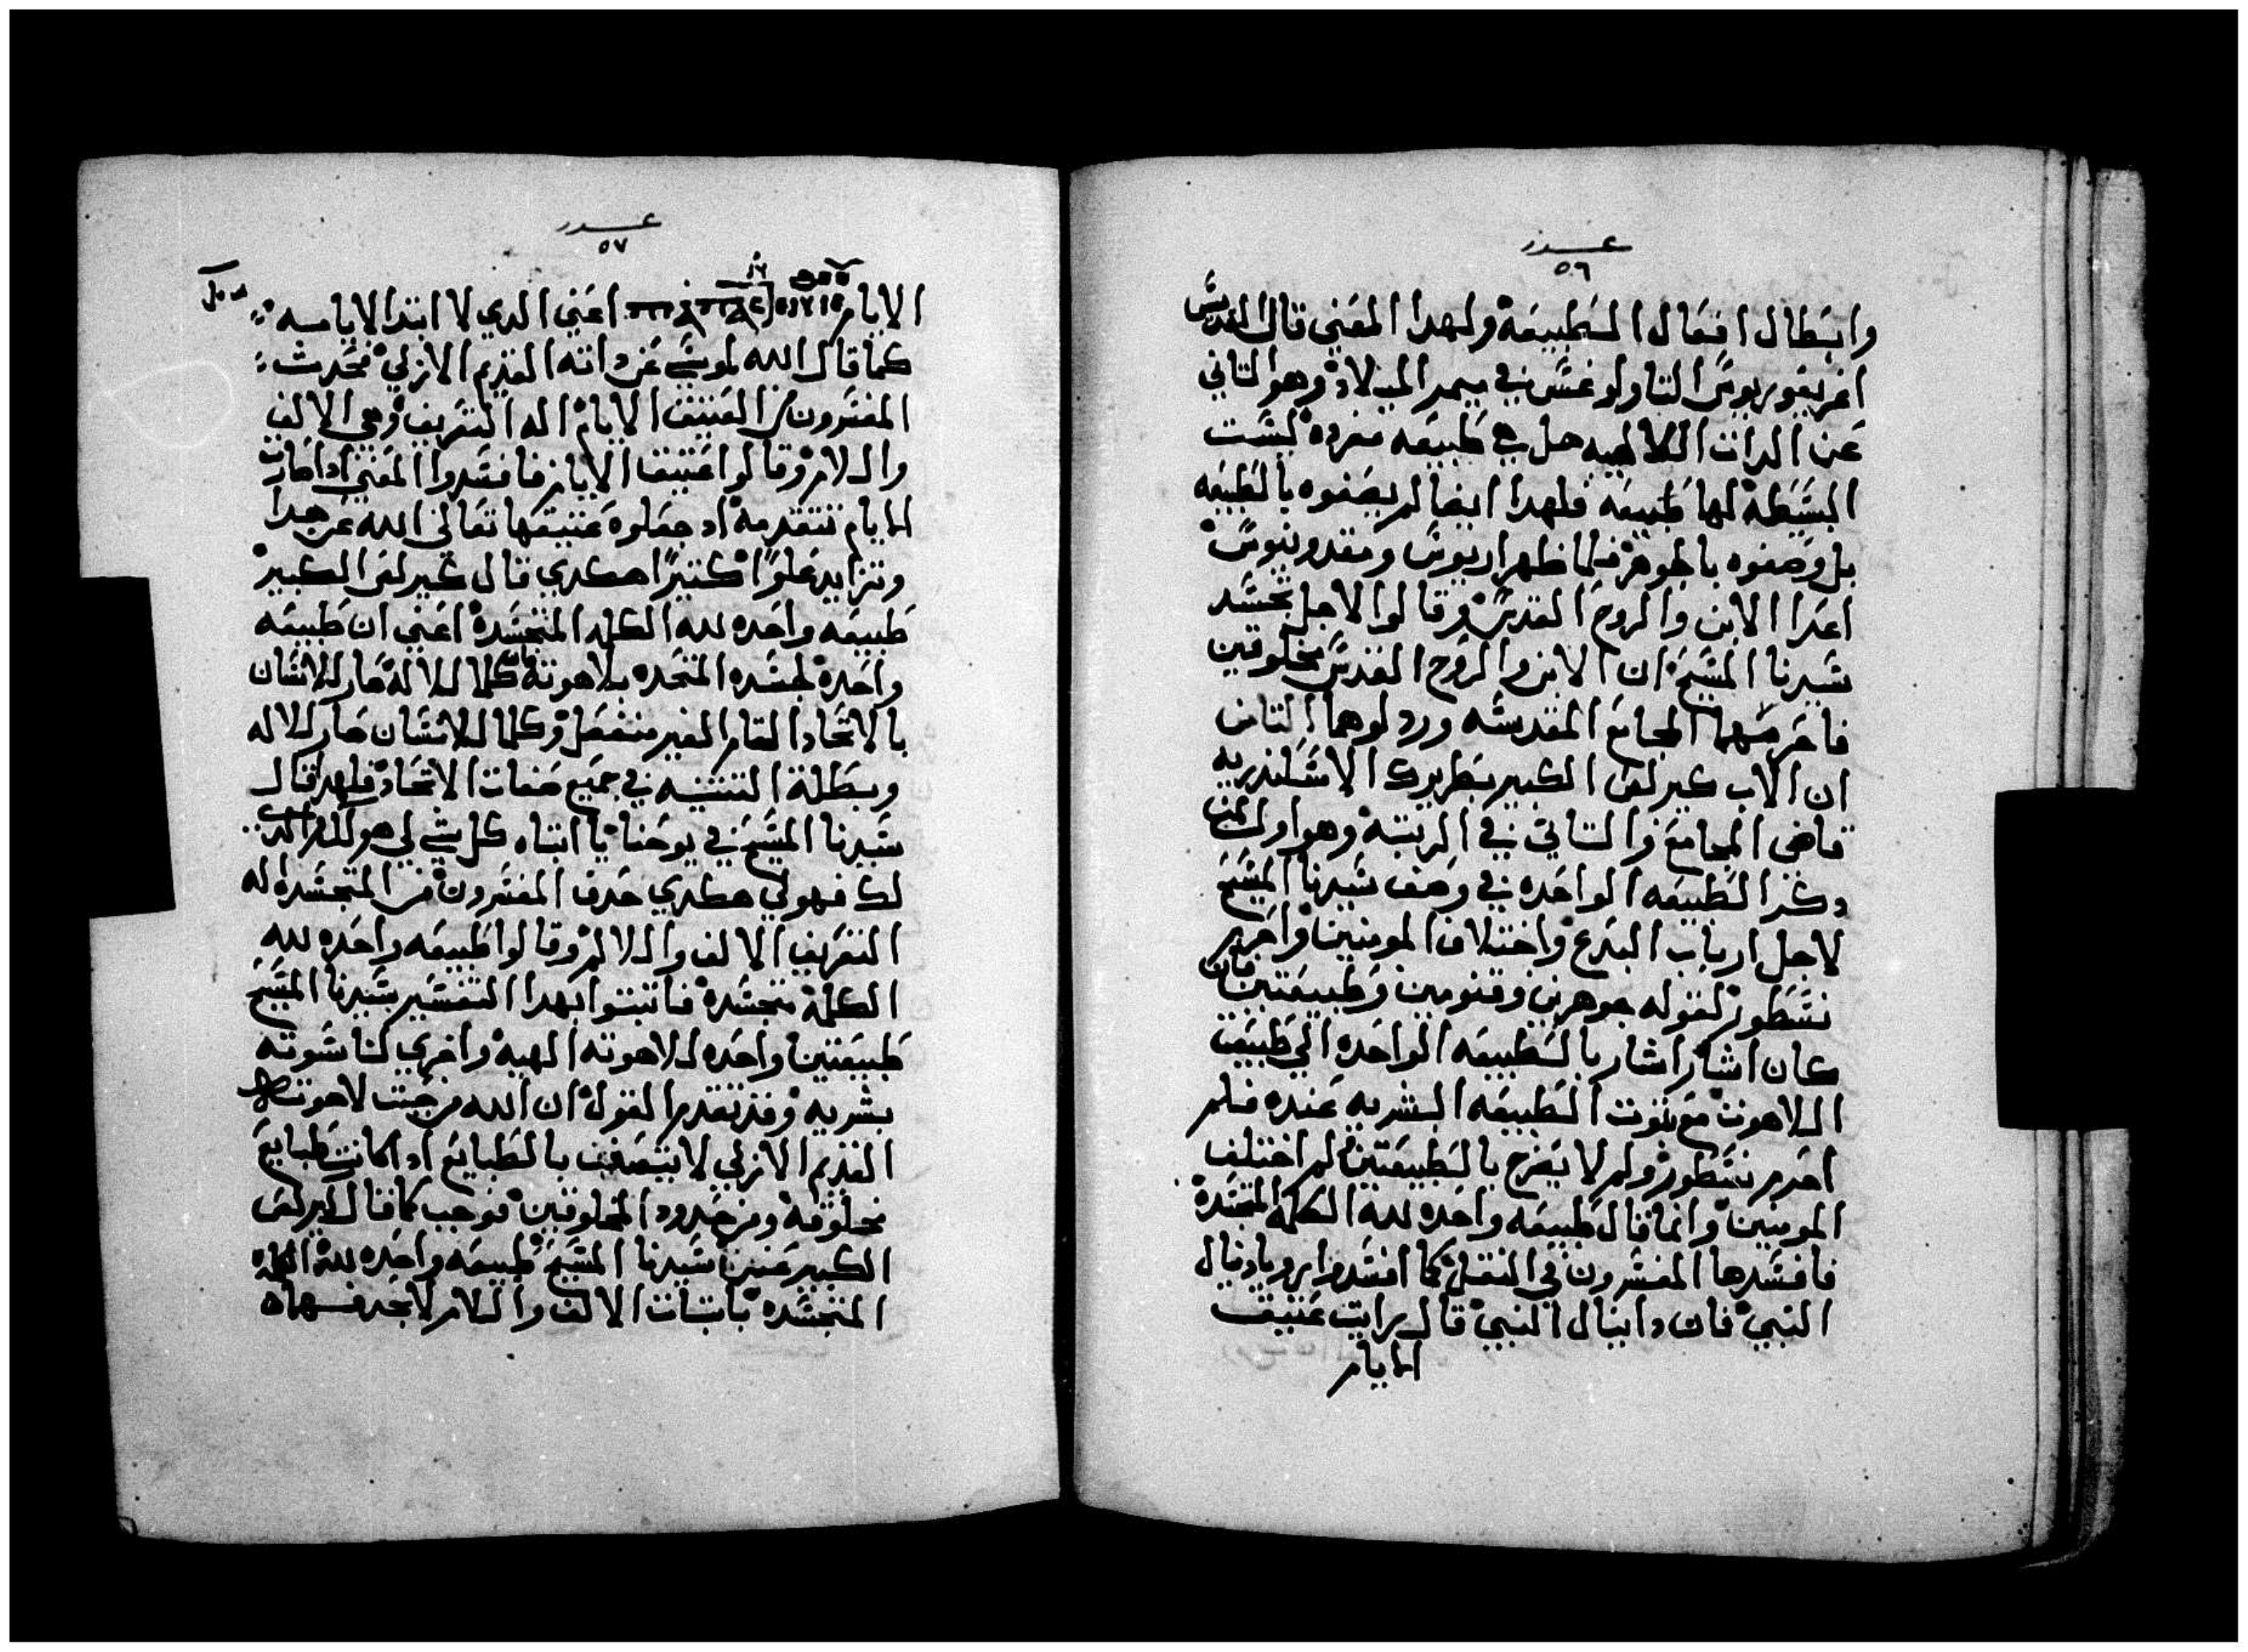 عدد
٥٦
وابطال افعال الطبيعة ولهدا المعني قال القديس
اغريغوريوس التاولوغس في ميمر الميلاد وهو التاني
عن الدات الالاهيه حل في طبيعه مفرده ليست
البسيطة لها طبيعه فلهدا ايضا لم يصفوه بالطبيعه
بل وصفوه بالجوهر فلما ظهر اريوس ومقدونيوس
اعدا الابن والروح القدس وقالوا لاجل تجسد
سيدنا المسيح ان الابن والروح القدس مخلوقين
فاحرمتهما المجامع المقدسه وردلوهما التامن
ان الاب كيرلص الكبير بطريرك الاسكندريه
قاضي المجامع والتاني في الرتبة وهو اول من
دكر الطبيعه الواحده في وصف سيدنا المسيح
لاجل ارباب البدع واختلاف المومنين واحرم
نسطور لقوله جوهرين وقنومين وطبيعتين فان
كان اشار اشار بالطبيعه الواحده الي طبيعت
اللاهوت مع تبوت الطبيعه البشريه عنده فلم
احرم نسطور ولم لا يصرح بالطبيعتين لم اختلف
المومنين وانما قال طبيعه واحده لله الكلمة المتجسدة
فافسدها المفسرون في النقل كما افسدوا برويا دنيال
النبي فان دانيال النبي قال رايت عتيق
الايام
عدد
٥٧
الايام اعني الدي لا ابتدا لايامه
كما قال الله لموسي عن داته القديم الازلي محدت
المفسرون من العتيق الايام اله التعريف وهي الالف
واللام وقالوا عتيق الايام فافسدوا المعني ادا صارت
الايام تتقدمه اد جعلوه عتيقها تعالي الله عن هدا
وتزايد علوًا كتيرًا هكدي قال كيرلص الكبير
طبيعه واحده لله الكلمه المتجسدة اعني ان طبيعه
واحدة لجسده المتحده بلاهوته كلما للاله صار للانسان
بالاتحاد التام الغير منفصل وكلما للانسان صار للاله
وبطلة التتنيه في جميع صفات الاتحاد فلهدا قال
سيدنا المسيح في يوحنا يا ابتاه كل شي لي هو لك
لك فهو لي هكدي حدف المفسرون من المتجسده اله
التعريف الالف واللام وقالوا طبيعه واحده لله
الكلمة متجسدة فاتبتوا بهدا التفسير بسيدنا المسيح
طبيعتين واحده للاهوته الهية واخري لناسوته
بشريه وقد تقدم القول ان الله من حيت لاهوته
القديم الازلي لا يتصف بالطبايع ادا كانت الطبايع
مخلوقة ومن حدود المخلوقين فوجب كما قال كيرلص
الكبير عن سيدنا المسيح طبيعه واحده لله الكلمة
المتجسده باتبات الالف واللام لا بحدفهما